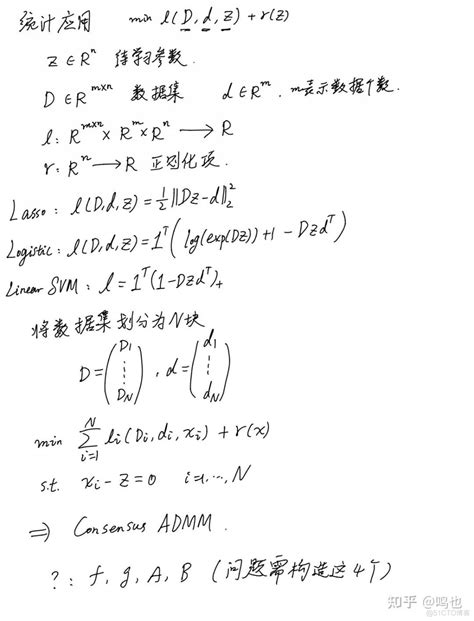 统计应用 min l(D, d, z) + r(z)
z ∈ Rⁿ 待学习参数.
D ∈ R^{m×n} 数据集 d ∈ R^m. m表示数据个数.
l: R^{m×n} × R^m × Rⁿ ⟶ R
r: Rⁿ ⟶ R 正则化项.
Lasso: l(D,d,z) = ½‖Dz-d‖₂²
Logistic: l(D,d,z) = 1^T( log(exp(Dz)) + 1 - Dzd^T )
Linear SVM: l = 1^T(1-Dzd^T)₊
将数据集划分为N块
D = (D₁ ⋮ D_N), d = (d₁ ⋮ d_N)
min ∑_{i=1}^{N} l_i(D_i, d_i, x_i) + r(x)
s.t. x_i - z = 0 i=1,…,N
⇒ Consensus ADMM.
?: f, g, A, B (问题需构造这4个)
知乎 @鸣也
@51CTO博客